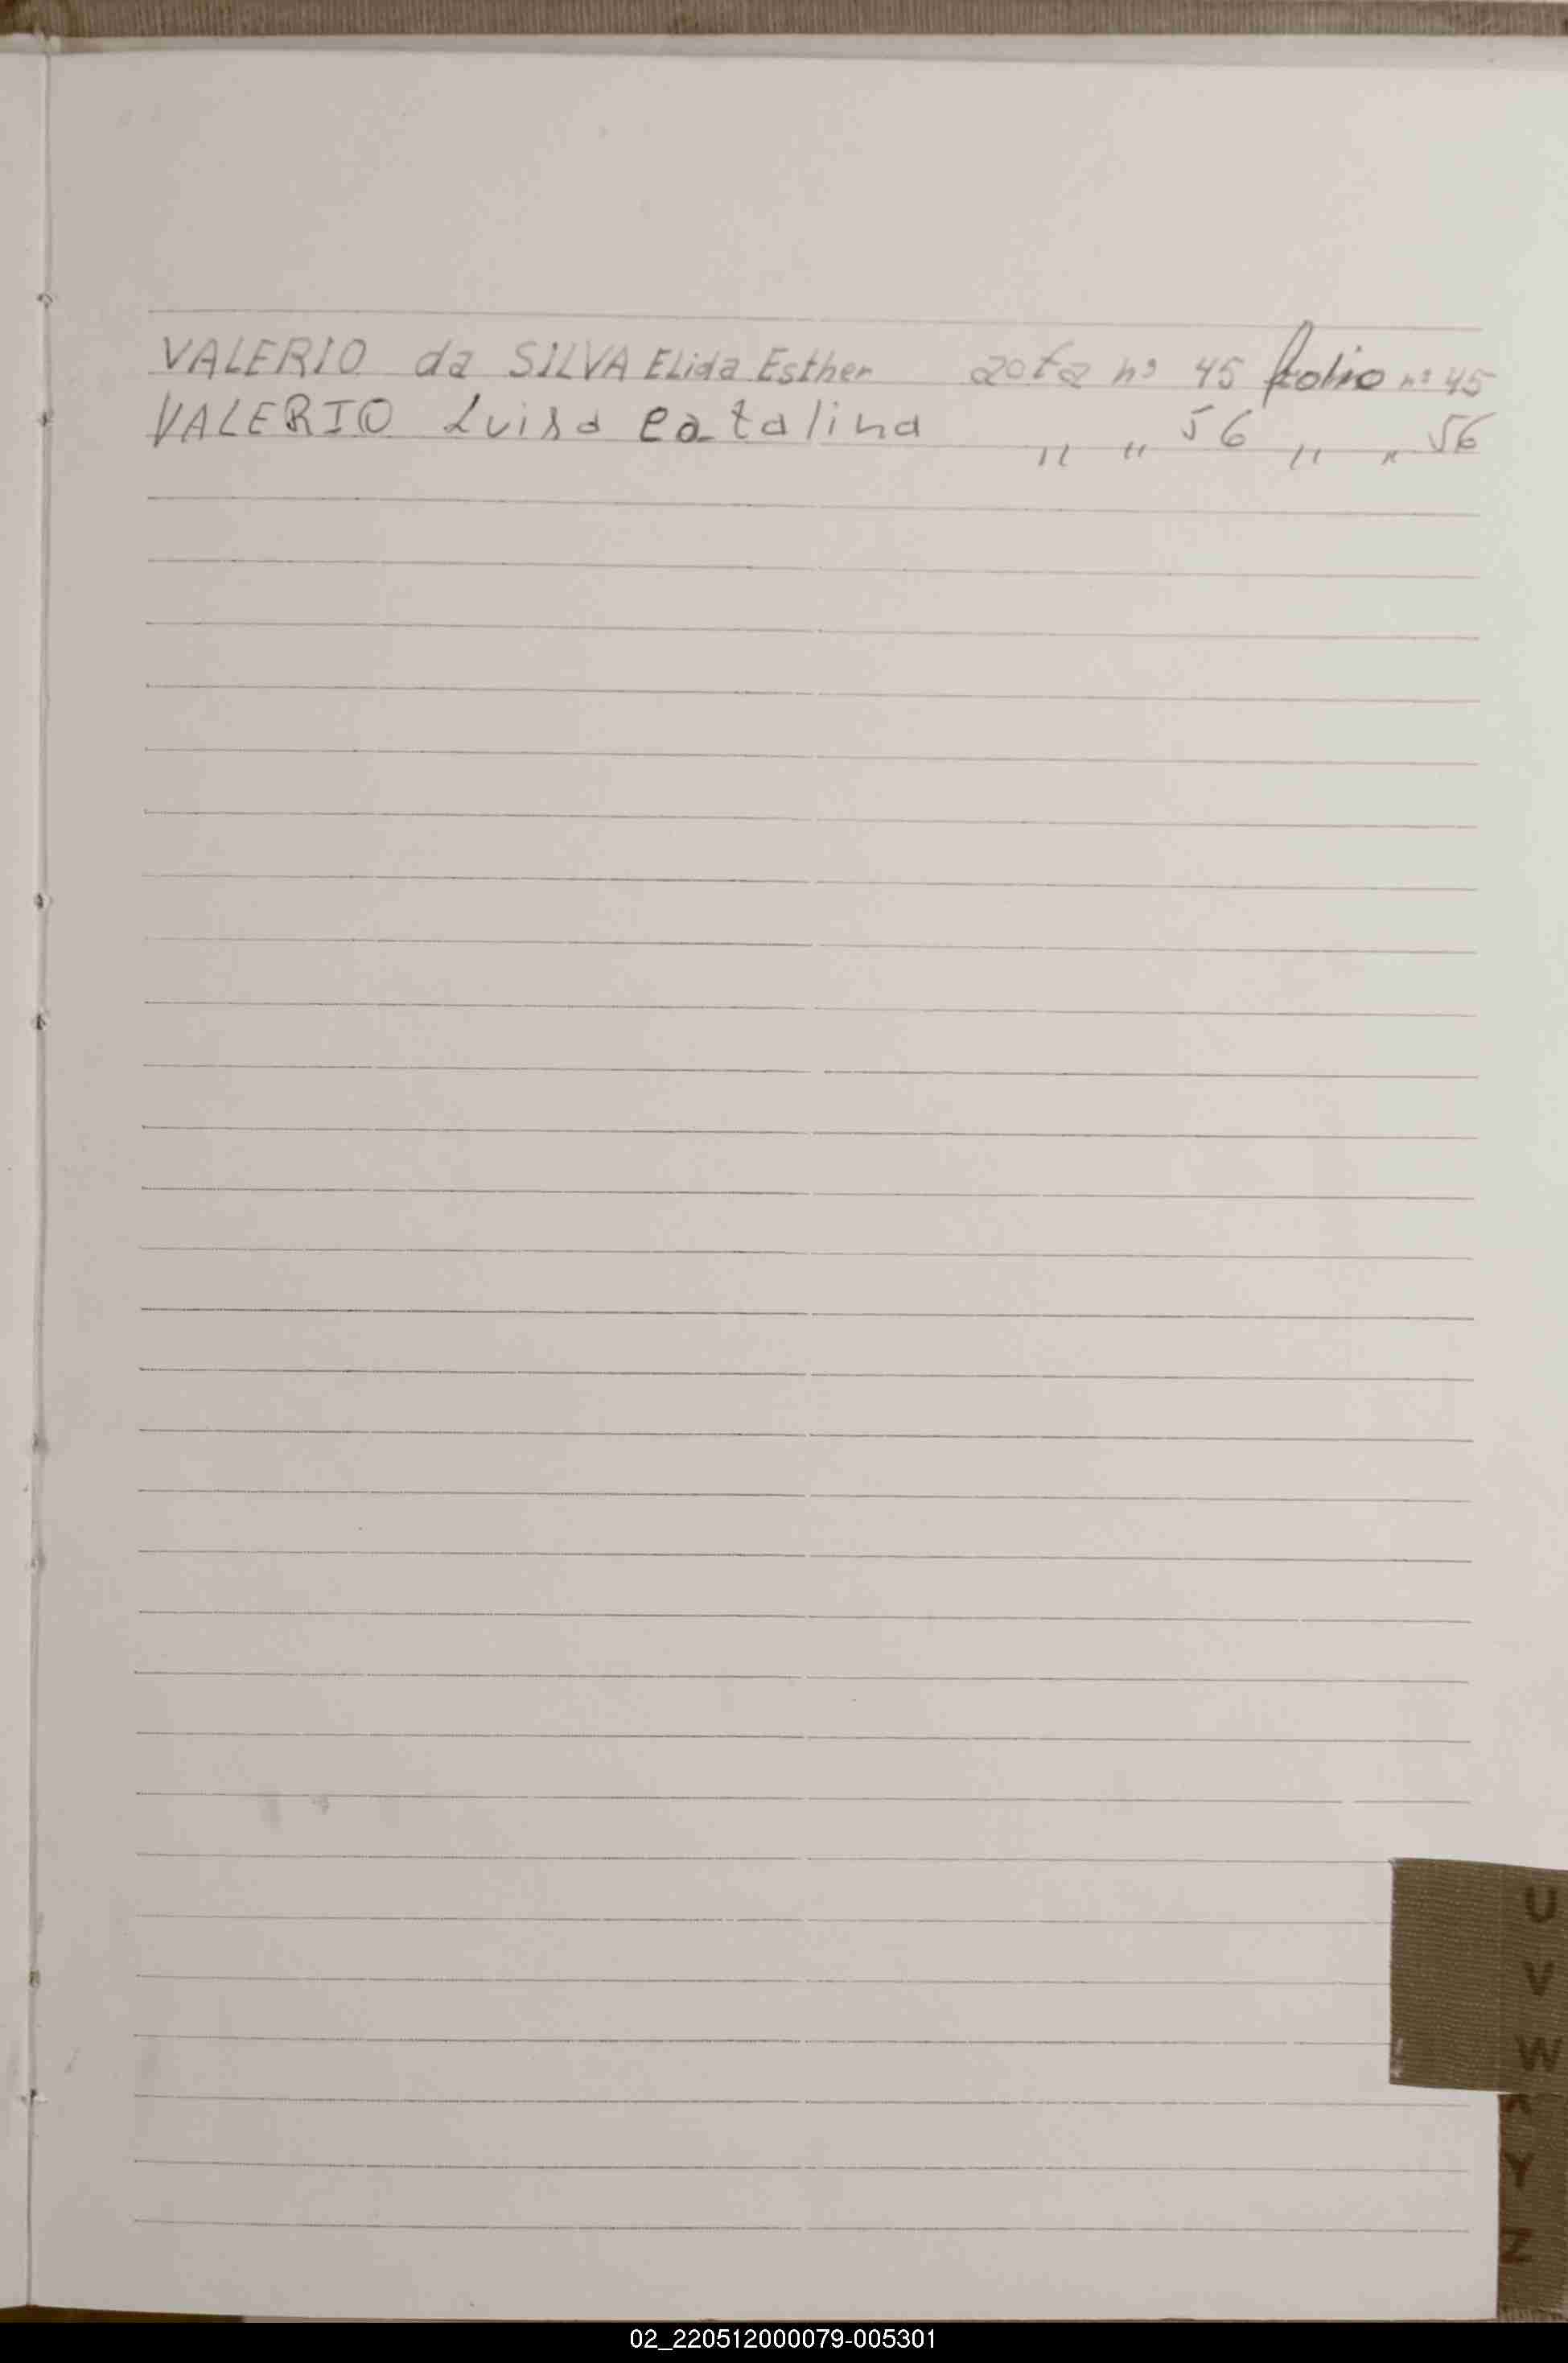 VALERIO da SILVA Elida Esther acta nº 45 folio nº 45
VALERIO Luisa Catalina " " 56 " " 56
U
V
W
X
Y
Z
02_220512000079-005301